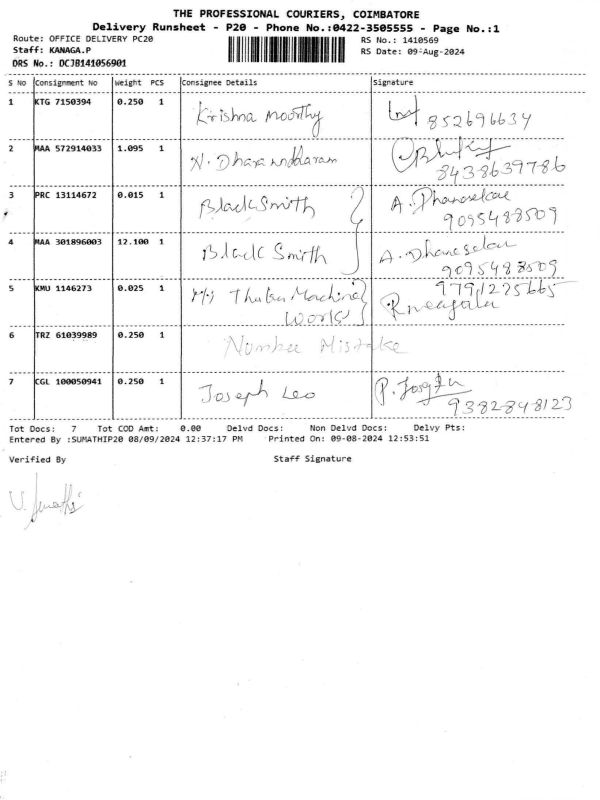 THE PROFESSIONAL COURIERS, COIMBATORE
Delivery Runsheet - P20 - Phone No.:0422-3505555 - Page No.:1
Route: OFFICE DELIVERY PC20 RS No.: 1410569
Staff: KANAGA.P RS Date: 09-Aug-2024
DRS No.: DCJB141056901
S No Consignment No Weight PCS Consignee Details Signature
1 KTG 7150394 0.250 1 Krishna moorthy 852696634
2 MAA 572914033 1.095 1 N.
8438639786
3 PRC 13114672 0.015 1 BlackSmith A. Dhanasekar
9095488509
4 MAA 301896003 12.100 1 Black Smith A. Dhanasekar
9095488509
5 KMU 1146273 0.025 1 M/s Machine 9791225665
Works
6 TRZ 61039989 0.250 1 Number Mistake
7 CGL 100050941 0.250 1 Joseph Leo P.
9382848123
Tot Docs: 7 Tot COD Amt: 0.00 Delvd Docs: Non Delvd Docs: Delvy Pts:
Entered By :SUMATHIP20 08/09/2024 12:37:17 PM Printed On: 09-08-2024 12:53:51
Verified By Staff Signature
V. Sumathi